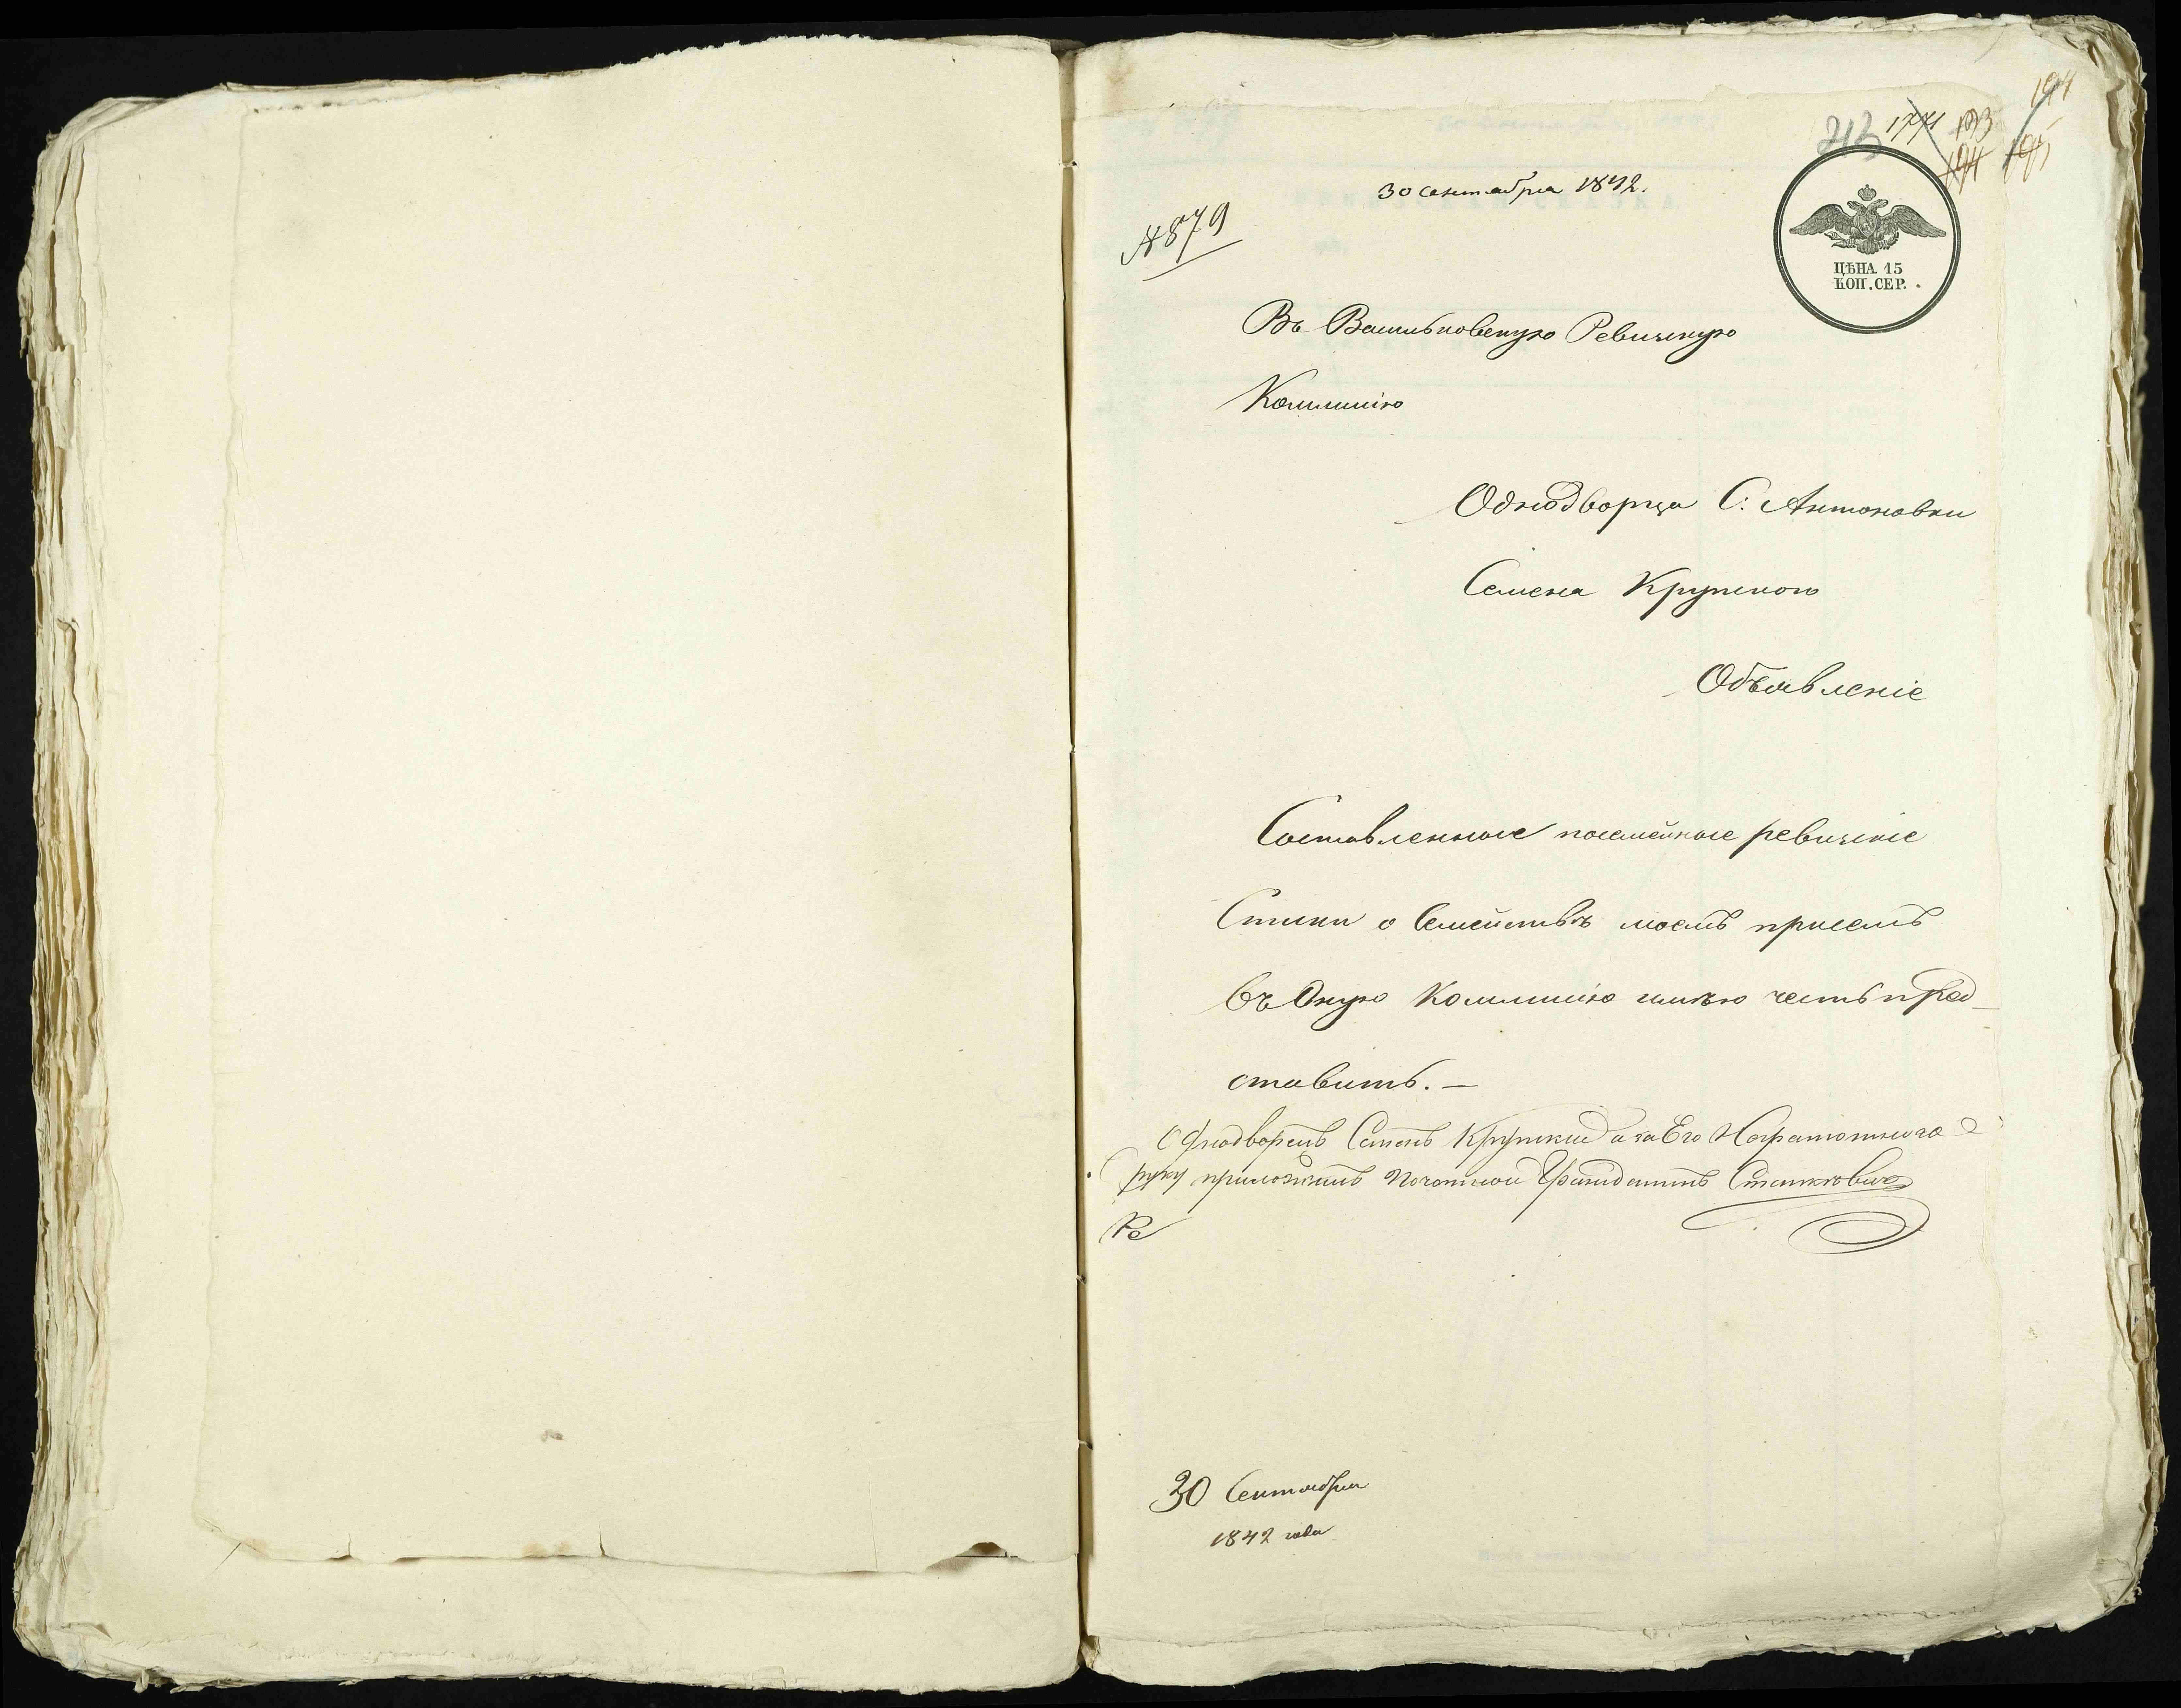 213 1771 193 194
194 195
30 Сентября 1842.
№ 879
ЦѢНА 15
КОП. СЕР.
Въ Васильковскую Ревизскую
Коммисію
Однодворца С: Антоновки
Семена Крупского
Объявленіе
Составленные посемейные ревизскіе
Списки о Семействѣ моемъ при семъ
въ Оную Коммисію имѣю честь пред-
ставить. —
Однодворецъ Семенъ Крупский а за Его Награмотнага
руку приложилъ Почотной Гражданинъ Станкевич
Ре
30 Сентября
1842 года